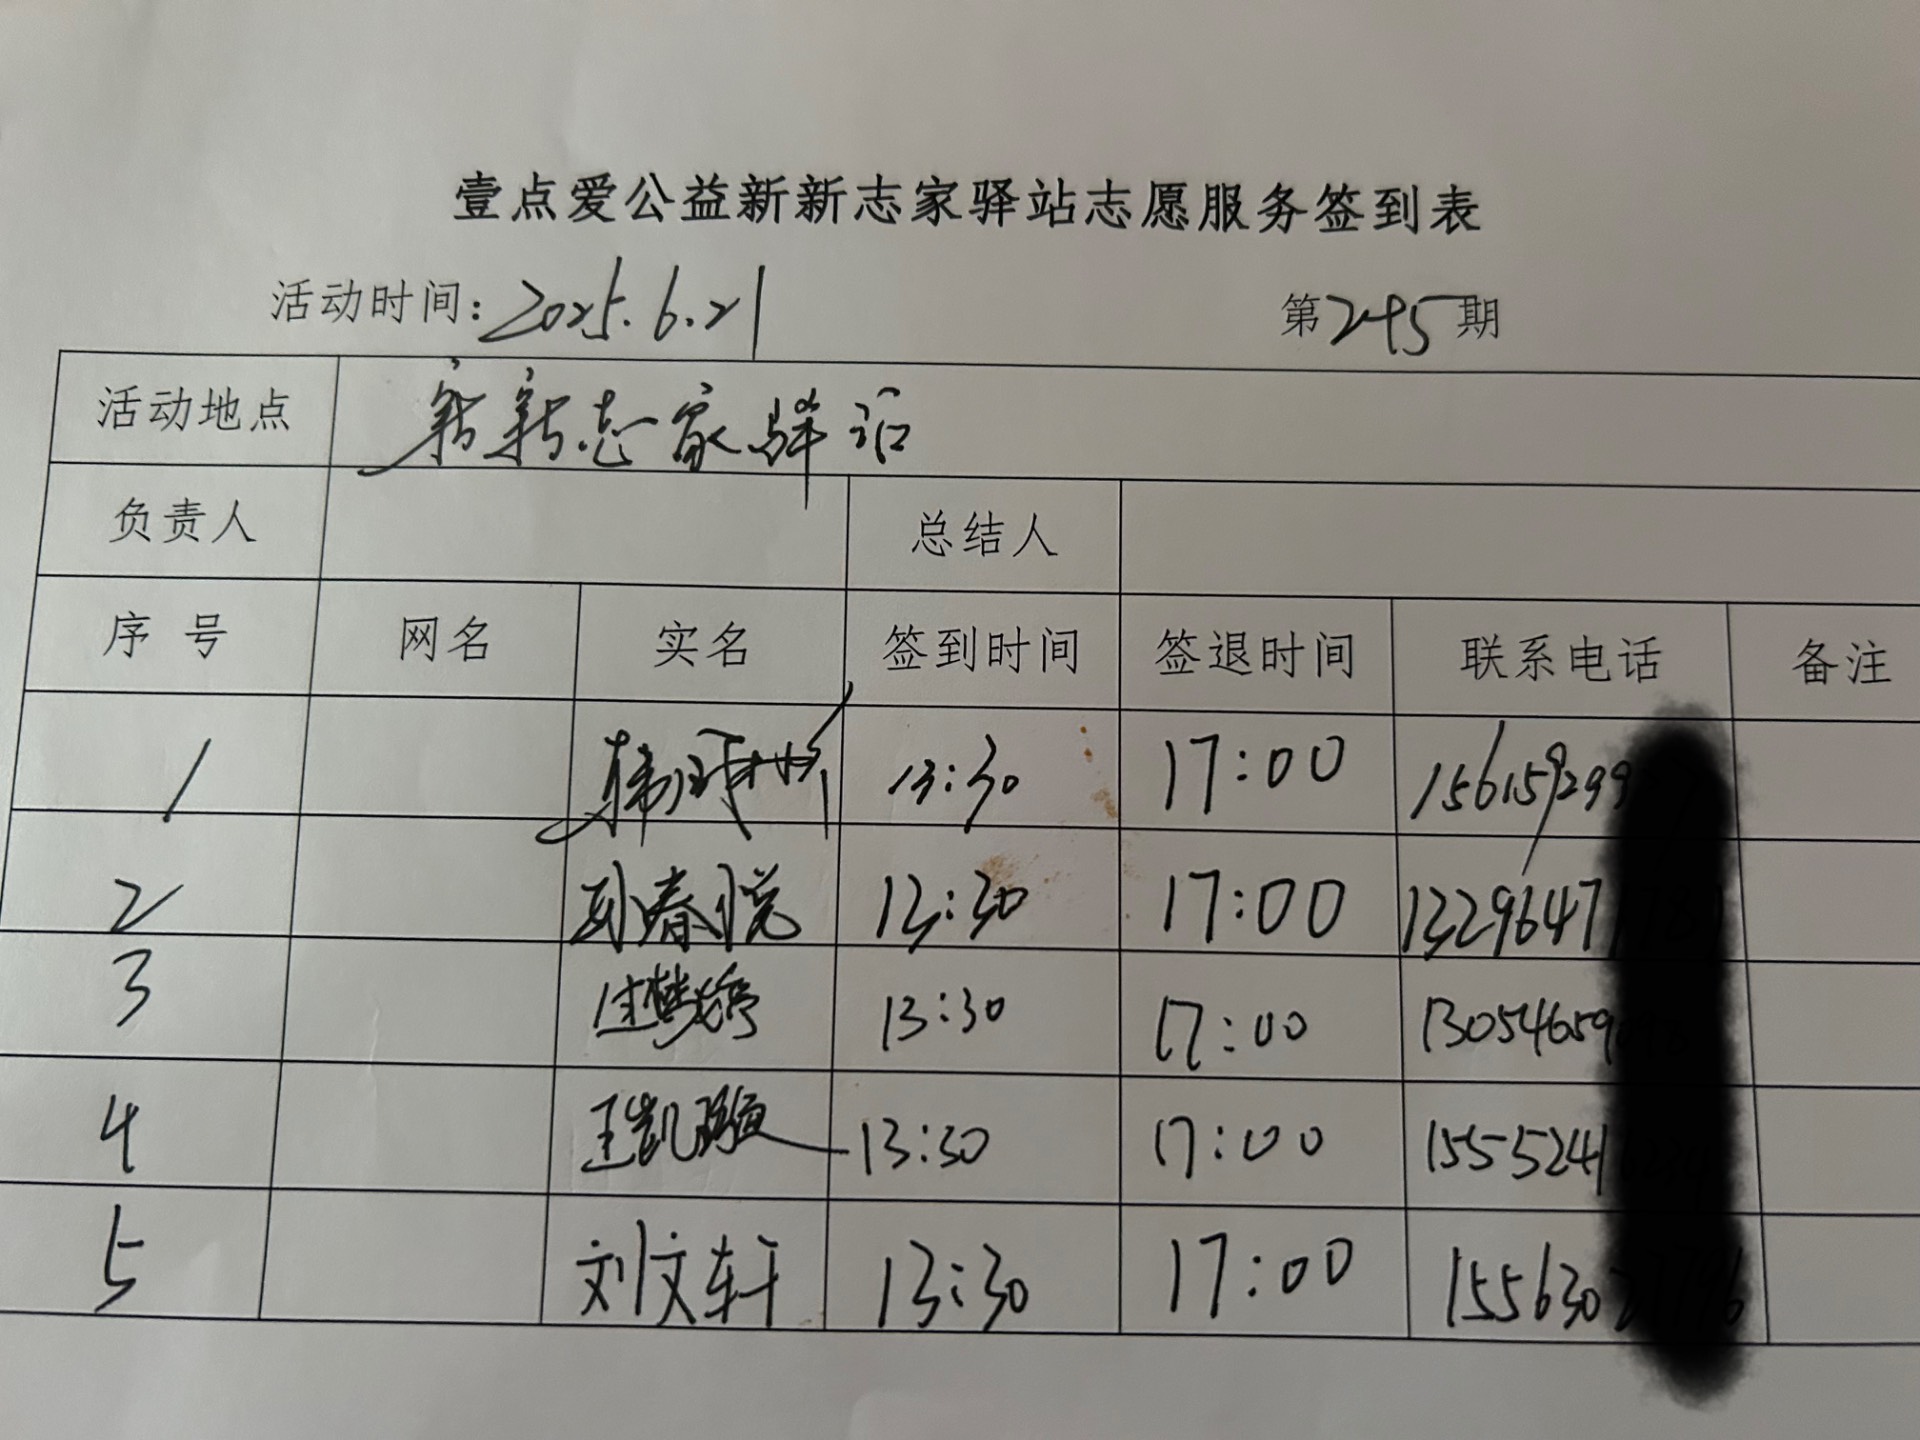 壹点爱公益新新志家驿站志愿服务签到表
活动时间：2025.6.21 第245期
活动地点 新新志家驿站
负责人 总结人
序号 网名 实名 签到时间 签退时间 联系电话 备注
1 13:30 17:00 156159299
2 孙春悦 13:30 17:00 1329647
3 13:30 17:00 13054659
4 王凯璇 13:30 17:00 1555241
5 刘文轩 13:30 17:00 155630